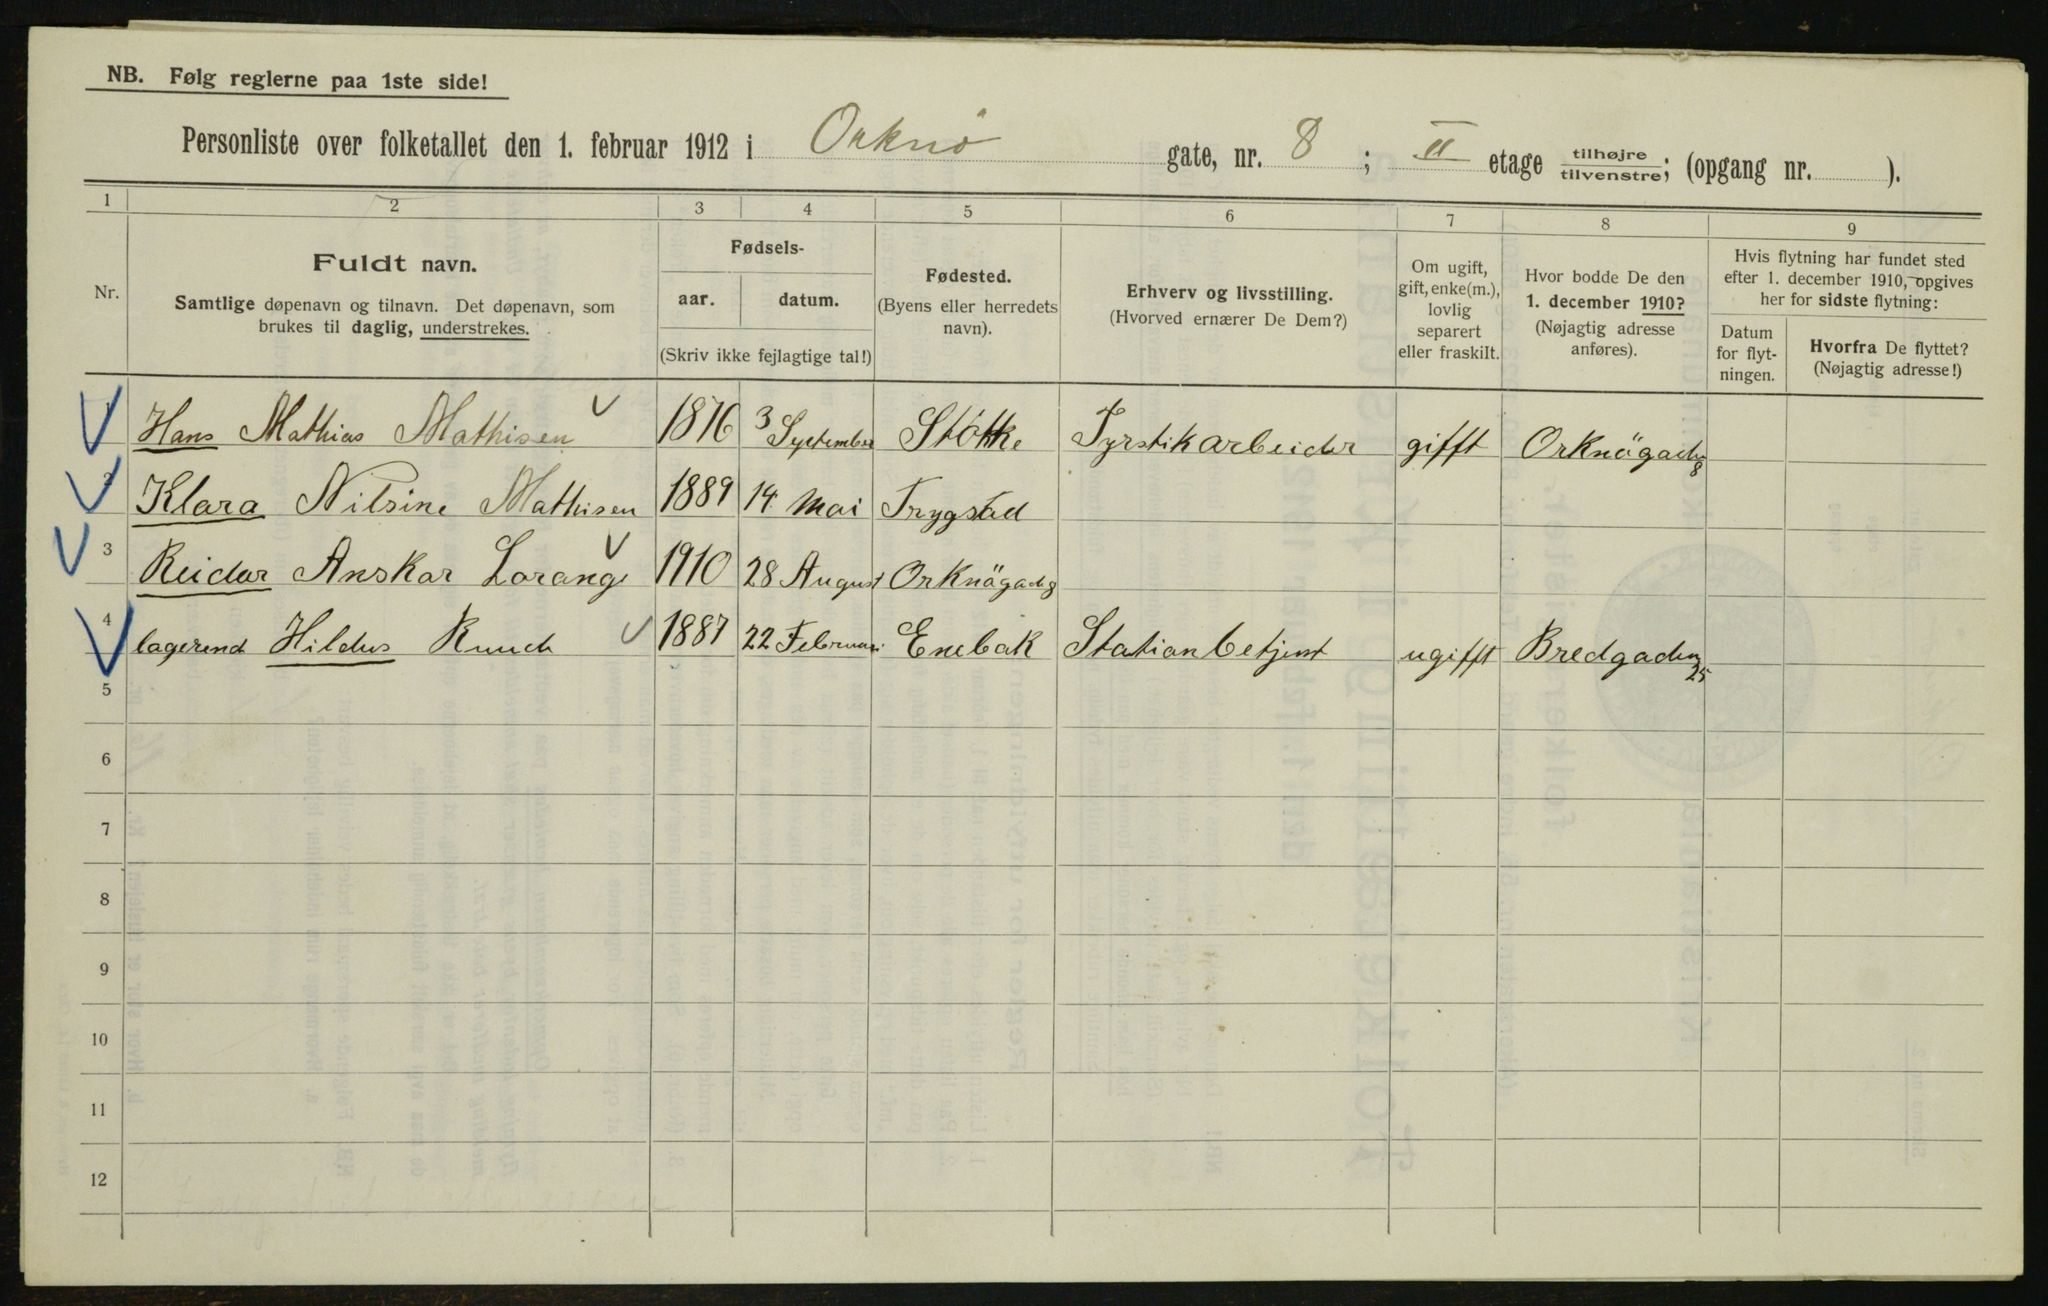 NB. Følg reglerne paa 1ste side!
Personliste over folketallet den 1. februar 1912 i Orknö gate, nr. 8 ; II etage tilhøjre/tilvenstre; (opgang nr. ).
1 2 3 4 5 6 7 8 9
Nr.
Fuldt navn.
Samtlige døpenavn og tilnavn. Det døpenavn, som
brukes til daglig, understrekes.
Fødsels-
aar. datum.
(Skriv ikke fejlagtige tal!)
Fødested.
(Byens eller herredets
navn).
Erhverv og livsstilling.
(Hvorved ernærer De Dem?)
Om ugift,
gift, enke(m.),
lovlig
separert
eller fraskilt.
Hvor bodde De den
1. december 1910?
(Nøjagtig adresse
anføres).
Hvis flytning har fundet sted
efter 1. december 1910, opgives
her for sidste flytning:
Datum
for flyt-
ningen.
Hvorfra De flyttet?
(Nøjagtig adresse!)
1 Hans Mathias Mathisen 1876 3 September Stokke Fyrstikarbeider gifft Orknögaden 8
2 Klara Nilsine Mathisen 1889 14 Mai Trygstad
3 Reidar Anskar Lorang 1910 28 August Orknögad 8
4 lagerend Hildus Ruud 1887 22 Februari Enebak Stationbetjent ugifft Bredgaden 25
5
6
7
8
9
10
11
12